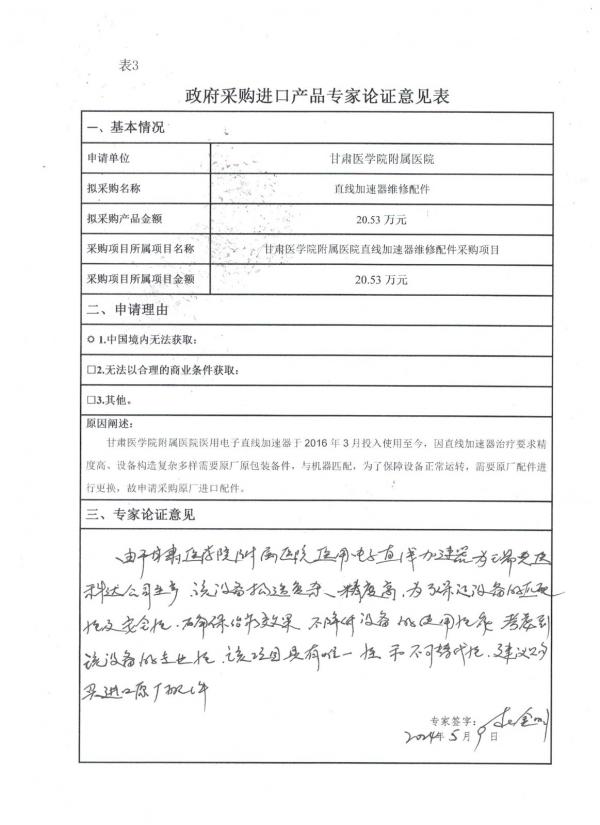 表3
政府采购进口产品专家论证意见表
一、基本情况
申请单位 甘肃医学院附属医院
拟采购名称 直线加速器维修配件
拟采购产品金额 20.53 万元
采购项目所属项目名称 甘肃医学院附属医院直线加速器维修配件采购项目
采购项目所属项目金额 20.53 万元
二、申请理由
1.中国境内无法获取：
□2.无法以合理的商业条件获取：
□3.其他。
原因阐述：
甘肃医学院附属医院医用电子直线加速器于 2016 年 3 月投入使用至今，因直线加速器治疗要求精
度高、设备构造复杂多样需要原厂原包装备件，与机器匹配，为了保障设备正常运转，需要原厂配件进
行更换，故申请采购原厂进口配件。
三、专家论证意见
由于甘肃医学院附属医院医用电子直线加速器为瑞典医
科达公司生产 该设备构造复杂、精度高，为了保证设备的匹配
性及安全性，确保治疗效果 不降低设备的使用性能 考虑到
该设备的专业性，该项目具有唯一性和不可替代性，建议购
买进口原厂配件
专家签字：
2024年 5 月 9 日